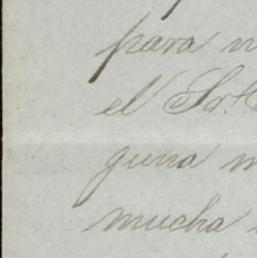 para
el Sr.
guna
mucha